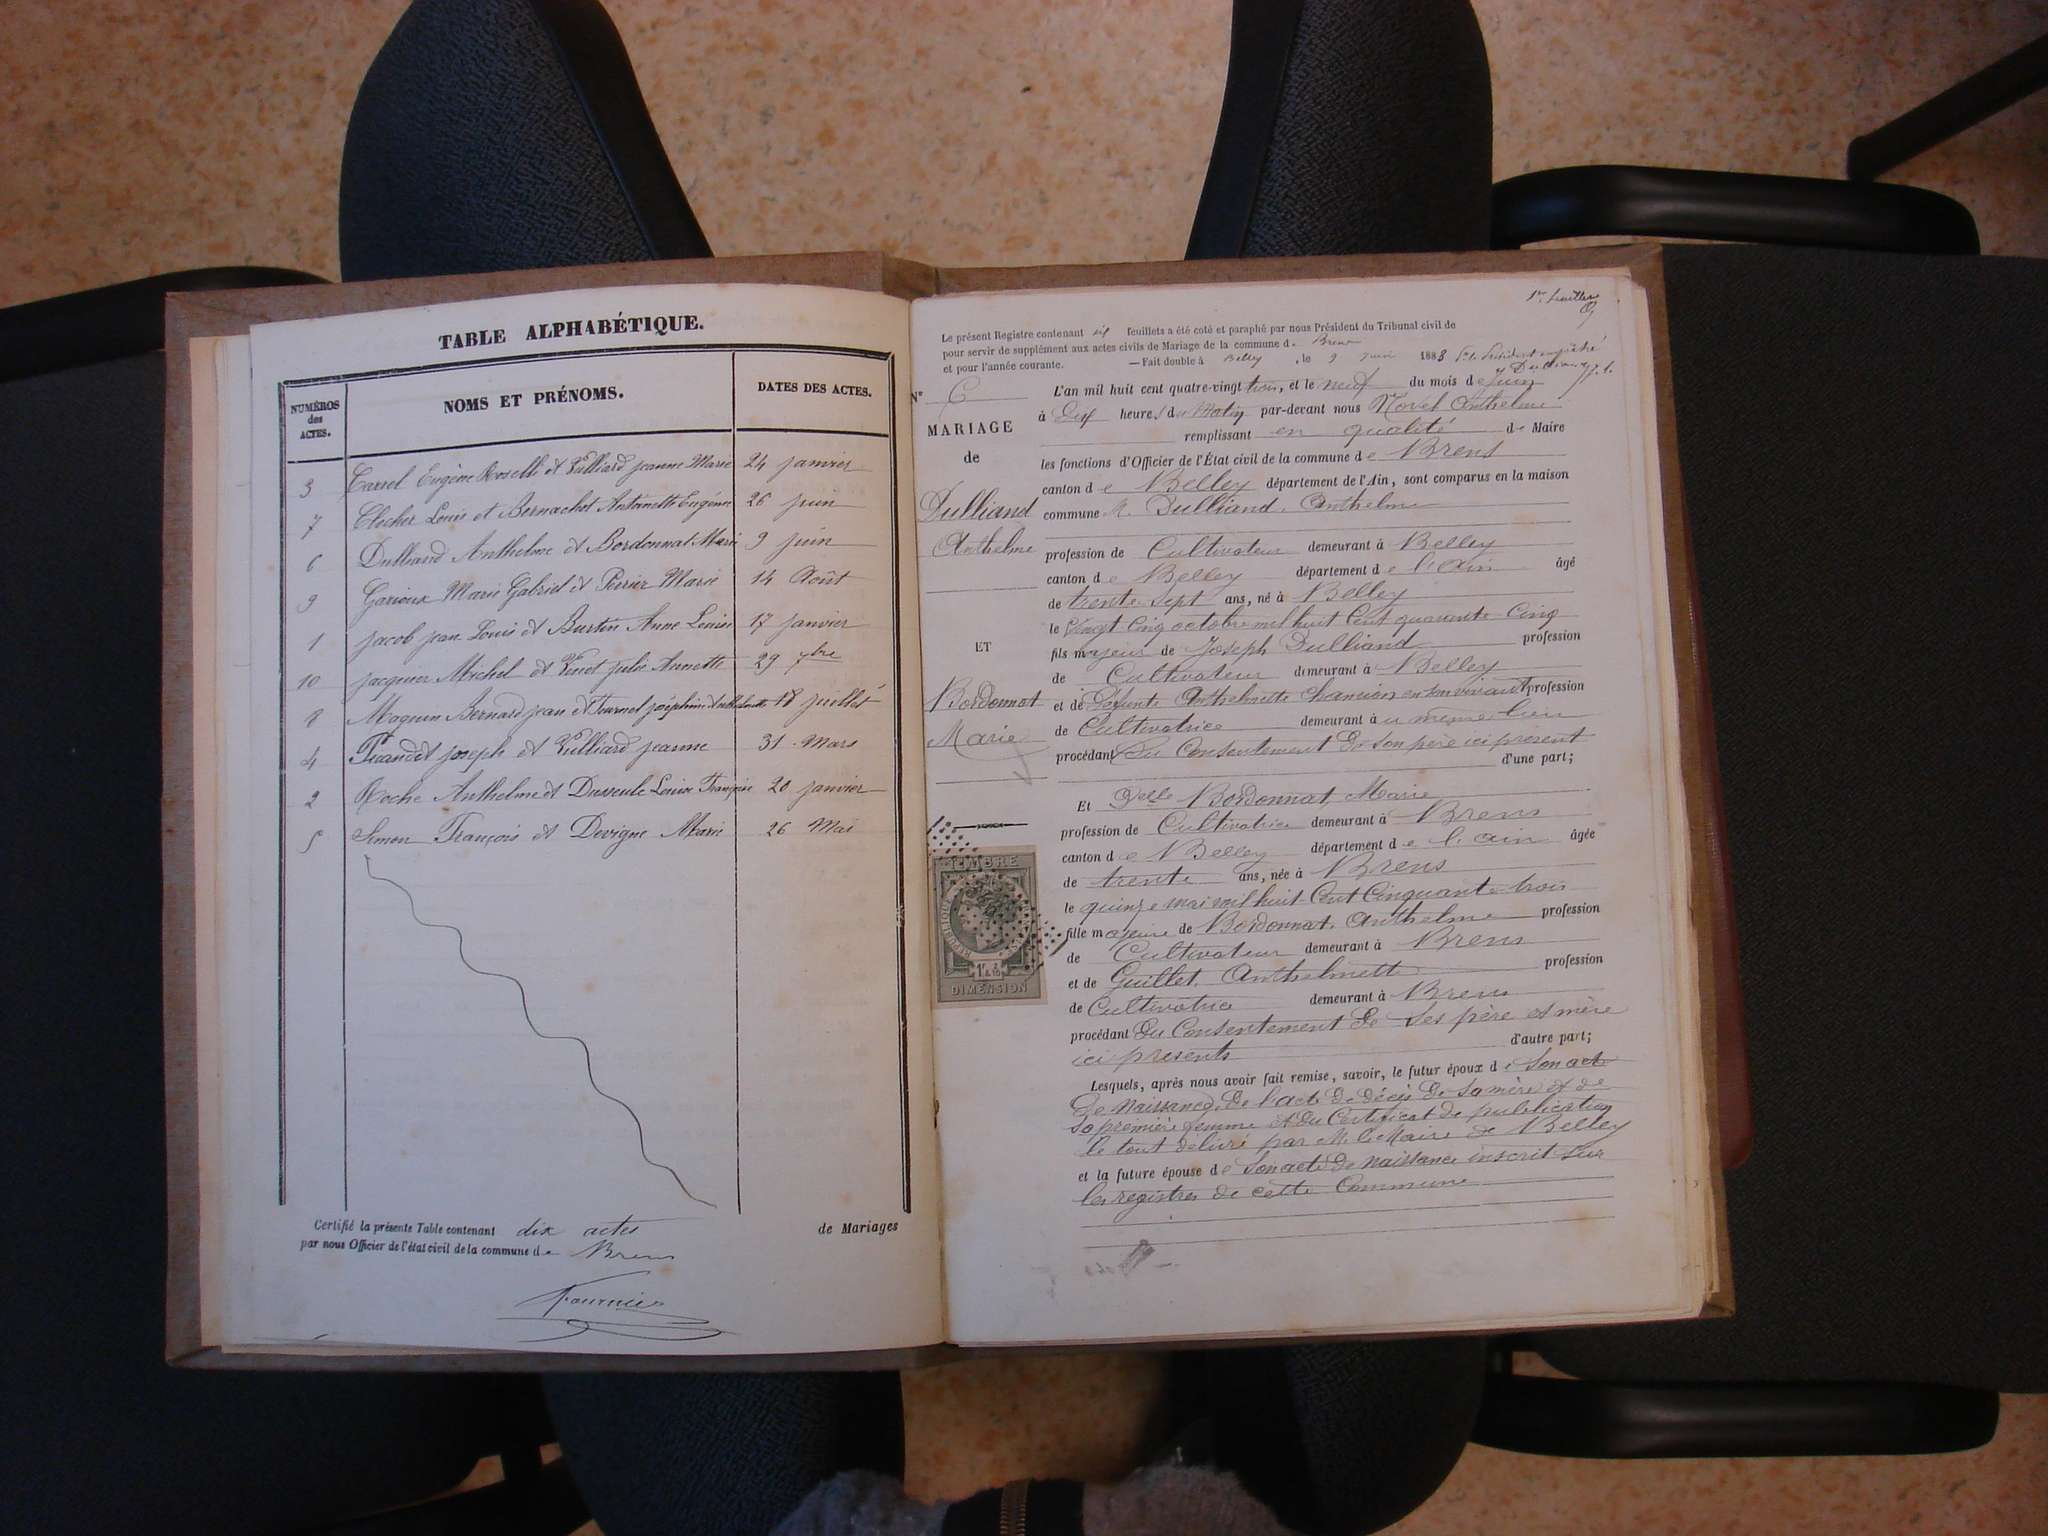 TABLE ALPHABÉTIQUE.
NUMÉROS des ACTES.
NOMS ET PRÉNOMS.
DATES DES ACTES.
3 Carrel Eugène Roselli et Vulliard jeanne Marie 24 janvier
7 Clocher Louis et Bernachot Antoinette Eugénie 26 juin
6 Dulliand Anthelme et Bordonnat Marie 9 juin
9 Garioux Marie Gabriel et Perrier Marie 14 Août
1 Jacob jean Louis et Burtin Anne Louise 17 janvier
10 Jacquier Michel et Vinet julie Annette 29 7bre
8 Maquin Bernard jean et Fournel joséphine 18 juillet
4 Picandet joseph et Vulliard jeanne 31 Mars
2 Roche Anthelme et Dusseule Louise Françoise 20 janvier
5 Simon François et Devigne Marie 26 Mai
Certifié la présente Table contenant dix actes de Mariages
par nous Officier de l'état civil de la commune de Brens
Fournier
1er feuillet
Le présent Registre contenant six feuillets a été coté et paraphé par nous Président du Tribunal civil de
pour servir de supplément aux actes civils de Mariage de la commune de Brens
et pour l'année courante. — Fait double à Belley, le 9 juin 1883 Pr le Président empêché
N° 6
MARIAGE
de
Dulliand
Anthelme
ET
Bordonnat
Marie
L'an mil huit cent quatre-vingt trois, et le neuf du mois de Juin
à Dix heures du Matin par-devant nous Morel Anthelme
remplissant en qualité de Maire
les fonctions d'Officier de l'État civil de la commune de Brens
canton de Belley département de l'Ain, sont comparus en la maison
commune M. Dulliand Anthelme
profession de Cultivateur demeurant à Belley
canton de Belley département de l'Ain âgé
de trente sept ans, né à Belley
le Vingt cinq octobre mil huit Cent quarante cinq
fils majeur de Joseph Dulliand profession
de Cultivateur demeurant à Belley
et de Défunte Anthelmette en son vivant profession
de Cultivatrice demeurant au même lieu
procédant Du Consentement De son père ici présent
d'une part;
Et Delle Bordonnat Marie
profession de Cultivatrice demeurant à Brens
canton de Belley département de l'ain âgée
de trente ans, née à Brens
le quinze mai mil huit Cent Cinquante trois
fille majeure de Bordonnat Anthelme profession
de Cultivateur demeurant à Brens
et de Guillet Anthelmette profession
de Cultivatrice demeurant à Brens
procédant Du Consentement De Ses père et mère
ici présents d'autre part;
Lesquels, après nous avoir fait remise, savoir, le futur époux de Son acte
De Naissance, De l'acte De décès De Sa mère et de
Sa première femme et du Certificat de publication
le tout délivré par M. le Maire de Belley
et la future épouse de Son acte De naissance inscrit sur
les registres de cette Commune
TIMBRE
1F & 2/10
DIMENSION